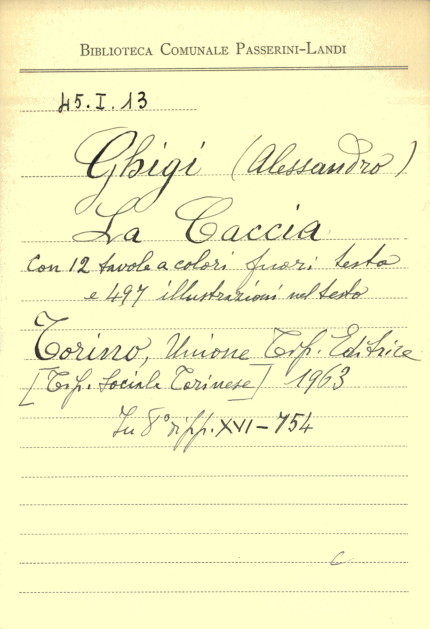 BIBLIOTECA COMUNALE PASSERINI-LANDI
45.I.13
Ghigi (Alessandro)
La Caccia
con 12 tavole a colori fuori testo
e 497 illustrazioni nel testo
Torino, Unione Tip. Editrice
[Tip. Sociale Torinese] 1963
In 8° di pp. XVI-754
C